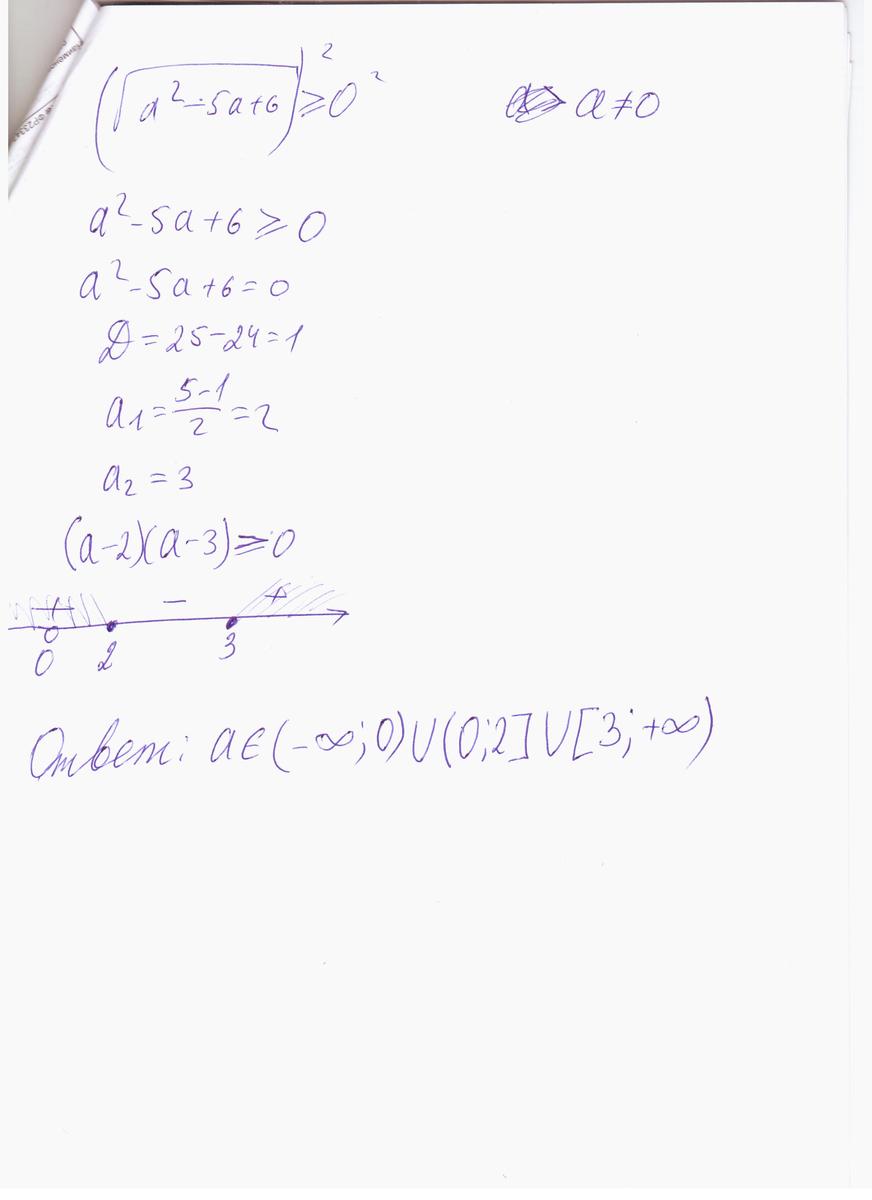 (√a²-5a+6)² ≥ 0² a ≠ 0
a²-5a+6 ≥ 0
a²-5a+6=0
D=25-24=1
a₁=(5-1)/2=2
a₂=3
(a-2)(a-3)≥0
+ - +
0 2 3
Ответ: a∈(-∞;0)∪(0;2]∪[3;+∞)